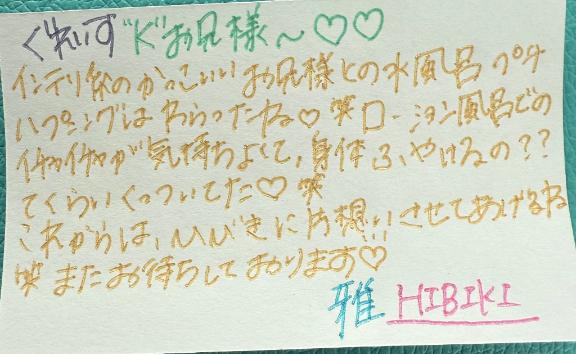 ぐれいす"K"お兄様〜♡♡
インテリ系のかっこいいお兄様との水風呂プチ
ハプニングはわらったね♡笑ローション風呂での
イチャイチャが気持ちよくて、身体ふやけるの??
てくらいくっついてた♡笑
これからは、ひびきに片想いさせてあげるね
笑またお待ちしております♡
雅 HIBIKI